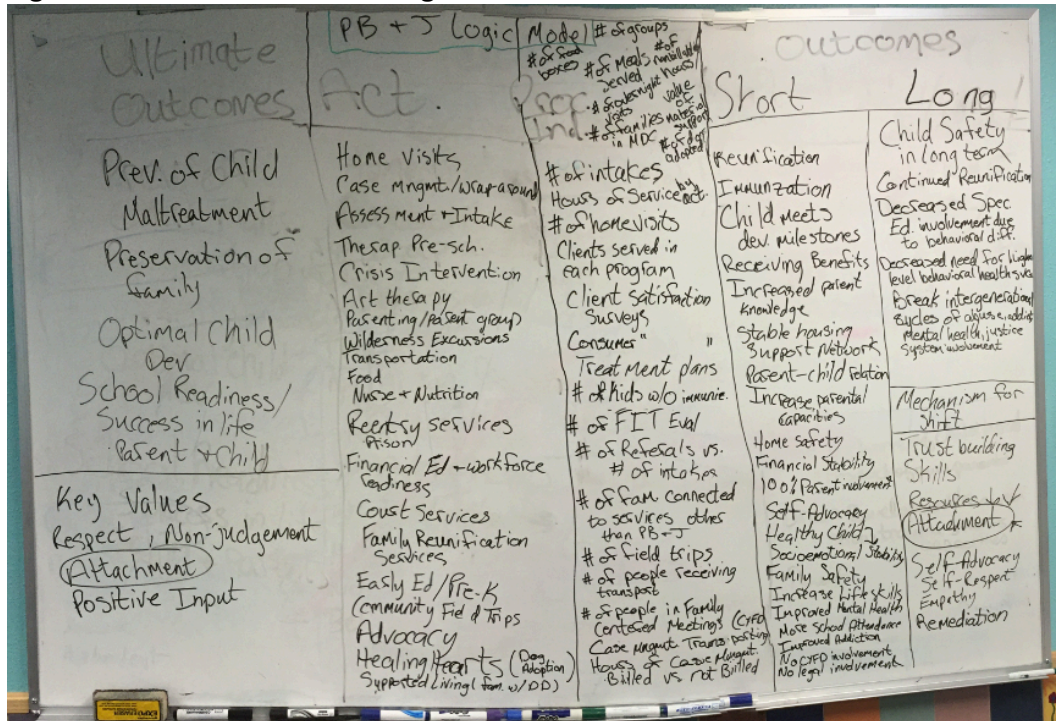 PB + J Logic Model
Ultimate
Outcomes
Prev. of Child
Maltreatment
Preservation of
family
Optimal Child
Dev
School Readiness/
Success in life
Parent + Child
Key Values
Respect, Non-judgement
Attachment
Positive Input
Act.
Home Visits
Case Mngmt./Wrap-around
Assessment + Intake
Therap. Pre-sch.
Crisis Intervention
Art therapy
Parenting/Parent group
Wilderness Excursions
Transportation
Food
Nurse + Nutrition
Reentry services
Prison
Financial Ed + workforce
readiness
Court Services
Family Reunification
Services
Early Ed/Pre-K
Community Field Trips
Advocacy
Healing Hearts (Dog
Adoption)
Supported Living (fam. w/DD)
Proc.
Ind.
# of groups
# of food
boxes
# of Meals
served
# of
nonbillable
hours/
# of overnight
visits
value
of
material
support
# of families
in MDC
# of dogs
adopted
# of intakes
Hours of Service by
act.
# of home visits
Clients served in
each program
Client Satisfaction
Surveys
Consumer " "
Treatment plans
# of kids w/o immunie.
# of FIT Eval
# of Referals vs.
# of intakes
# of fam connected
to services other
than PB + J
# of field trips
# of people receiving
transport
# of people in Family
Centered Meetings (CYFD)
Case Mngmt Transporting
Hours of Case Mngmt.
Billed vs not Billed
Outcomes
Short
Reunification
Immunization
Child Meets
dev. milestones
Receiving Benefits
Increased parent
knowledge
Stable housing
Support Network
Parent-child relation
Increase parental
capacities
Home safety
Financial Stability
100% Parent involvement
Self-Advocacy
Healthy Child
Socioemotional Stability
Family Safety
Increase Life skills
Improved Mental Health
More School Attendance
Improved Addiction
No CYFD involvement
No legal involvement
Long
Child Safety
in long term
Continued Reunification
Decreased Spec
Ed. involvement due
to behavioral diff.
Decreased need for higher
level behavioral health svcs
Break intergenerational
cycles of abuse, addict
mental health, justice
system involvement
Mechanism for
shift
Trust building
Skills
Resources
Attachment
Self-Advocacy
Self-Respect
Empathy
Remediation
EXPO